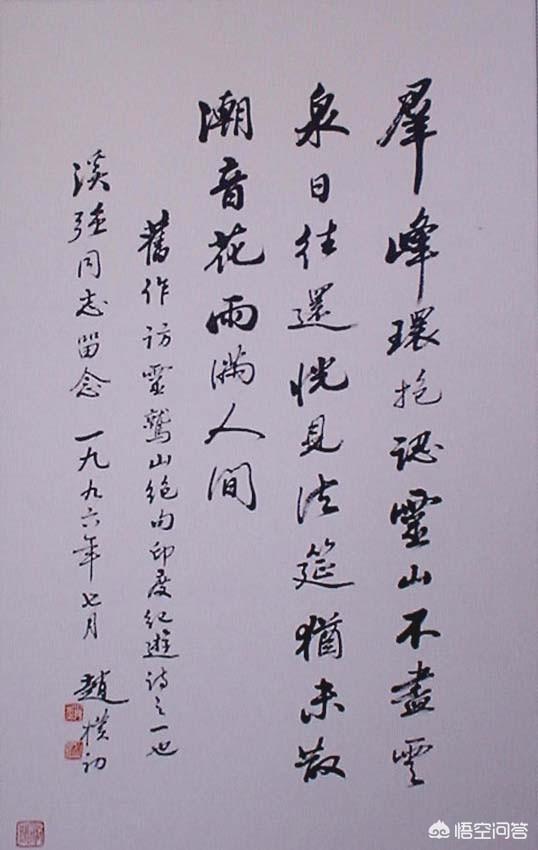 羣峰環抱認靈山不盡雲
泉日往還恍見法筵猶未散
潮音花雨滿人間
舊作訪靈鷲山絕句印度紀遊詩之一也
漢強同志留念 一九九六年七月 趙樸初
悟空问答